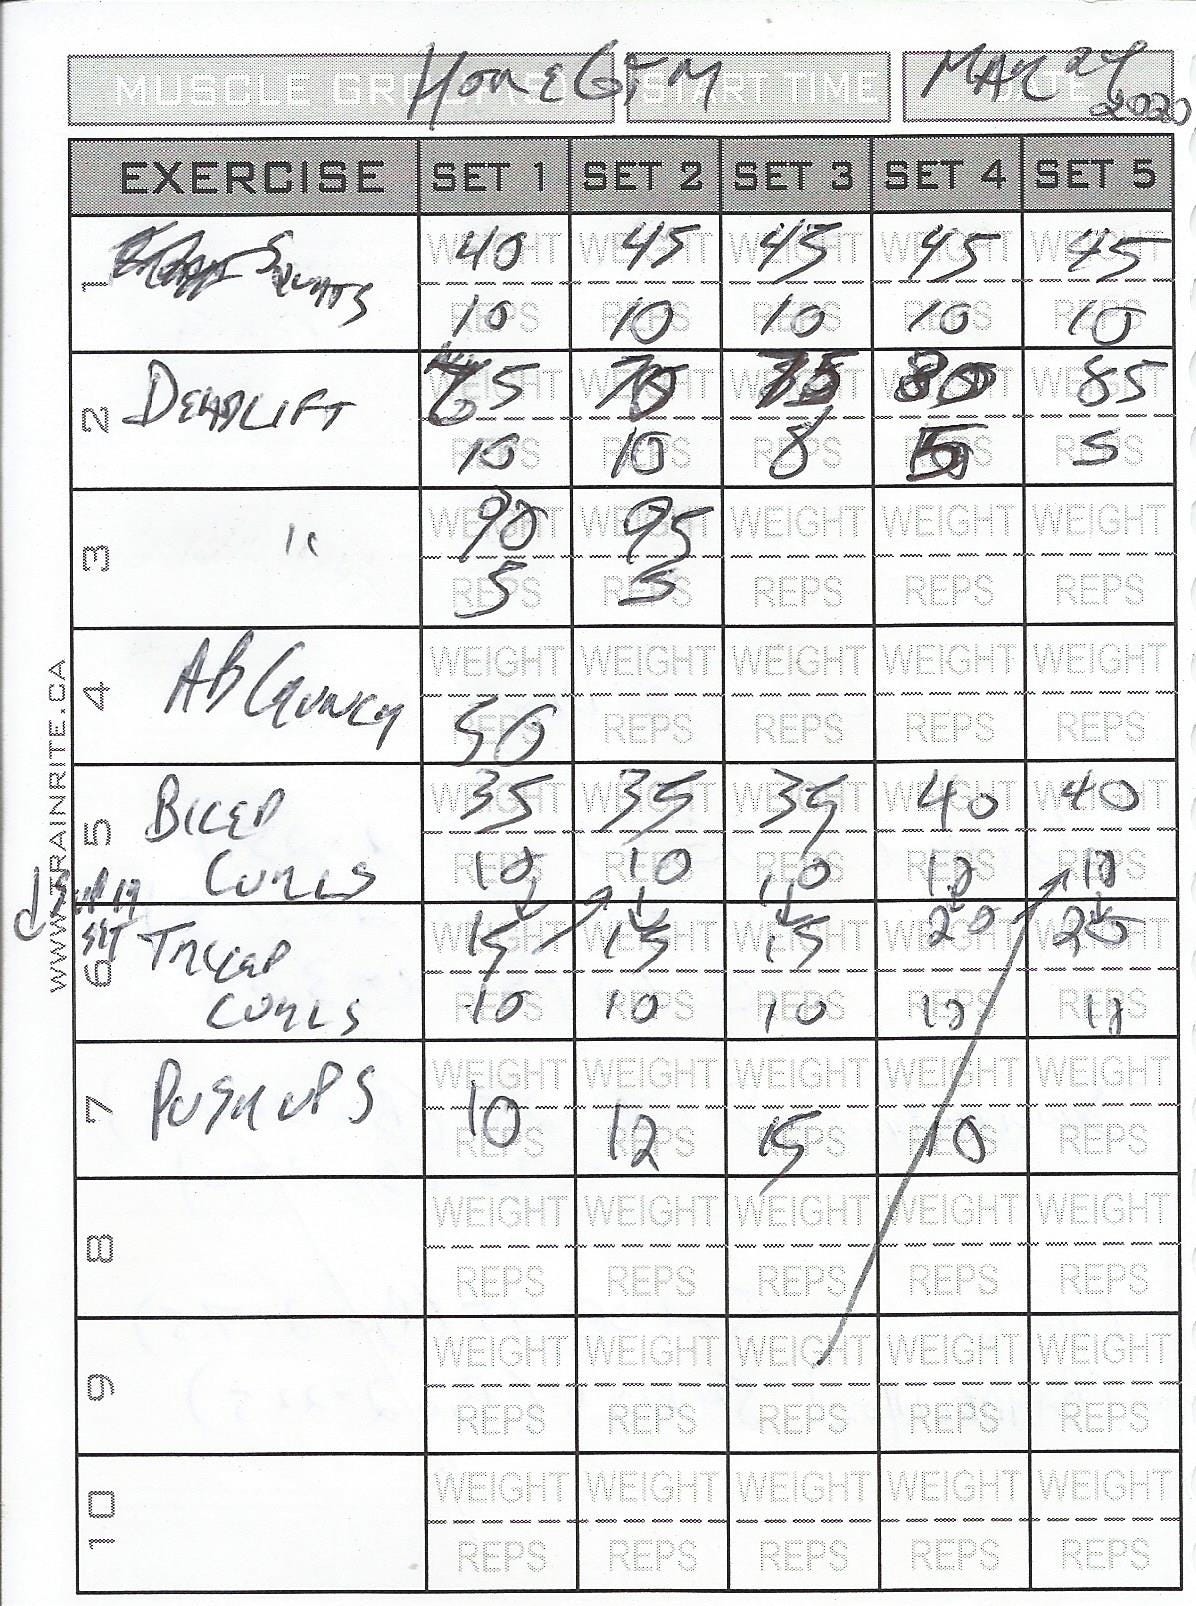 MUSCLE GROUPS START TIME DATE
HOME GYM MAR 24
2020
EXERCISE SET 1 SET 2 SET 3 SET 4 SET 5
1 SQUATS
WEIGHT 40 WEIGHT 45 WEIGHT 45 WEIGHT 45 WEIGHT 45
REPS 10 REPS 10 REPS 10 REPS 10 REPS 10
2 DEADLIFT
WEIGHT 65 WEIGHT 70 WEIGHT 75 WEIGHT 80 WEIGHT 85
REPS 10 REPS 10 REPS 8 REPS 5 REPS 5
3 "
WEIGHT 90 WEIGHT 95 WEIGHT WEIGHT WEIGHT
REPS 5 REPS 5 REPS REPS REPS
4 AB CRUNCH
WEIGHT WEIGHT WEIGHT WEIGHT WEIGHT
REPS 50 REPS REPS REPS REPS
5 BICEP
CURLS
WEIGHT 35 WEIGHT 35 WEIGHT 35 WEIGHT 40 WEIGHT 40
REPS 10 REPS 10 REPS 10 REPS 10 REPS 10
SET
6 TRICEP
CURLS
WEIGHT 15 WEIGHT 15 WEIGHT 15 WEIGHT 20 WEIGHT 20
REPS 10 REPS 10 REPS 10 REPS 10 REPS
7 PUSH UPS
WEIGHT WEIGHT WEIGHT WEIGHT WEIGHT
REPS 10 REPS 12 REPS 15 REPS 10 REPS
8
WEIGHT WEIGHT WEIGHT WEIGHT WEIGHT
REPS REPS REPS REPS REPS
9
WEIGHT WEIGHT WEIGHT WEIGHT WEIGHT
REPS REPS REPS REPS REPS
10
WEIGHT WEIGHT WEIGHT WEIGHT WEIGHT
REPS REPS REPS REPS REPS
WWW.TRAINRITE.CA